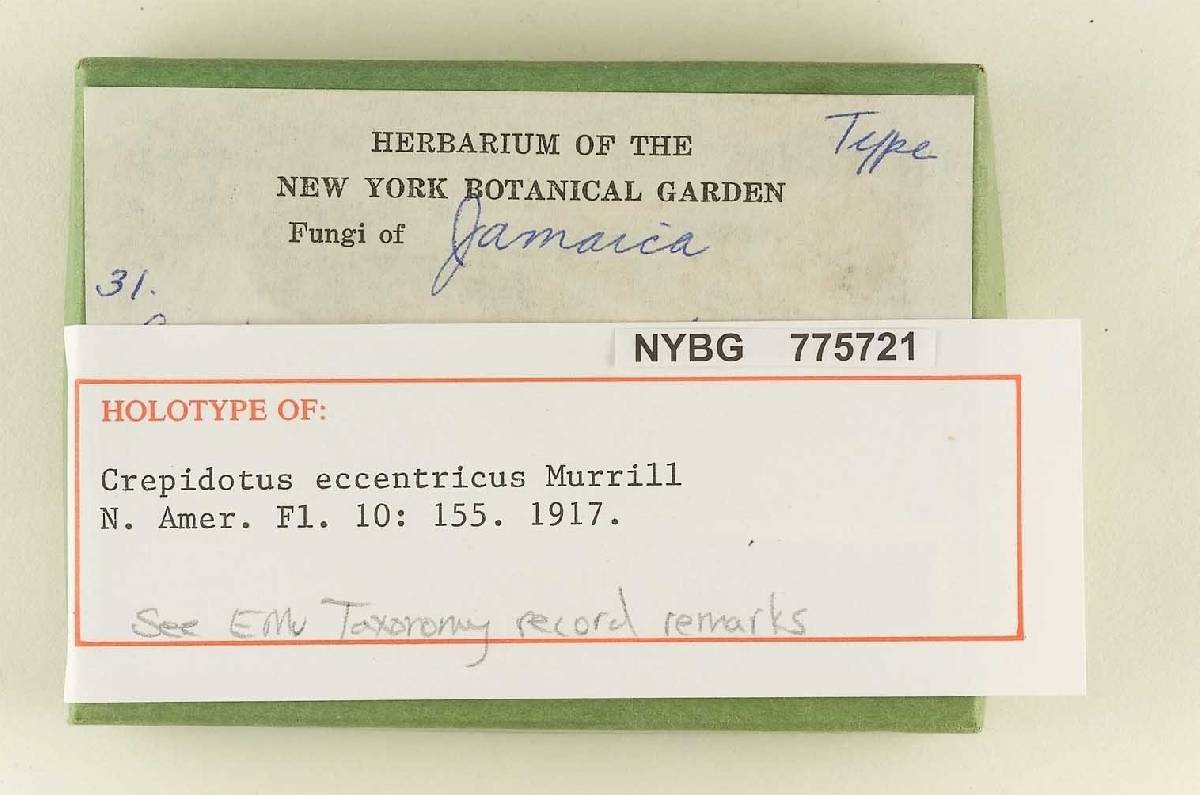 Type
HERBARIUM OF THE
NEW YORK BOTANICAL GARDEN
Fungi of Jamaica
31.
NYBG 775721
HOLOTYPE OF:
Crepidotus eccentricus Murrill
N. Amer. Fl. 10: 155. 1917.
See EMu Taxonomy record remarks